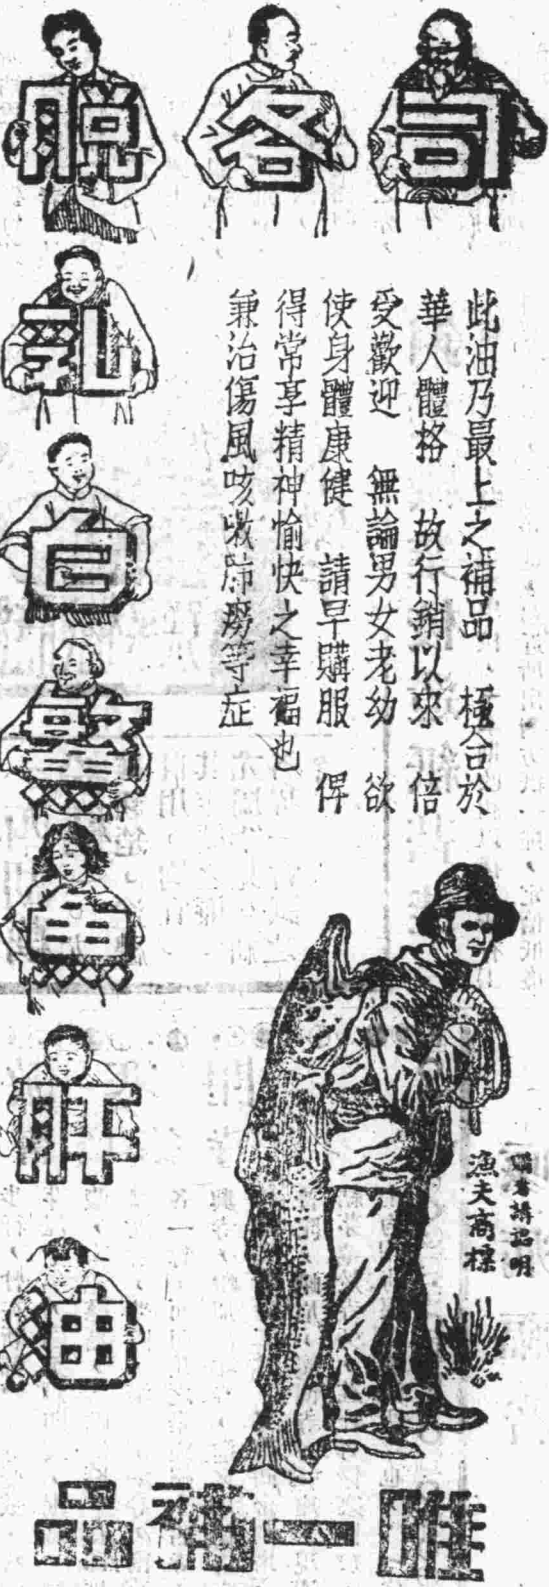 司各脫
乳白鰵魚肝油
此油乃最上之補品 極合於
華人體格 故行銷以來 倍
受歡迎 無論男女老幼 欲
使身體康健 請早購服 俾
得常享精神愉快之幸福也
兼治傷風咳嗽肺癆等症
購者請認明
漁夫商標
唯一補品